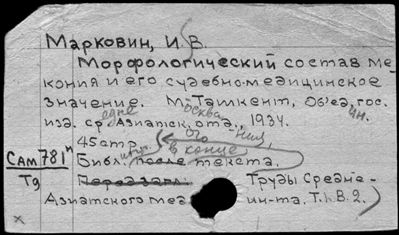 Марковин, И. В.
Морфологический состав ме-
кония и его судебно-медицинское
значение. Москва-Ташкент, Объед. гос.
изд. средне Азиатск. ого отд-ние, 1934.
45 стр.
Библ. в конце текста.
Сам 781
Тд
Передзагл.: Труды Средне-
Азиатского мед. ин-та. Т. I. В. 2.)